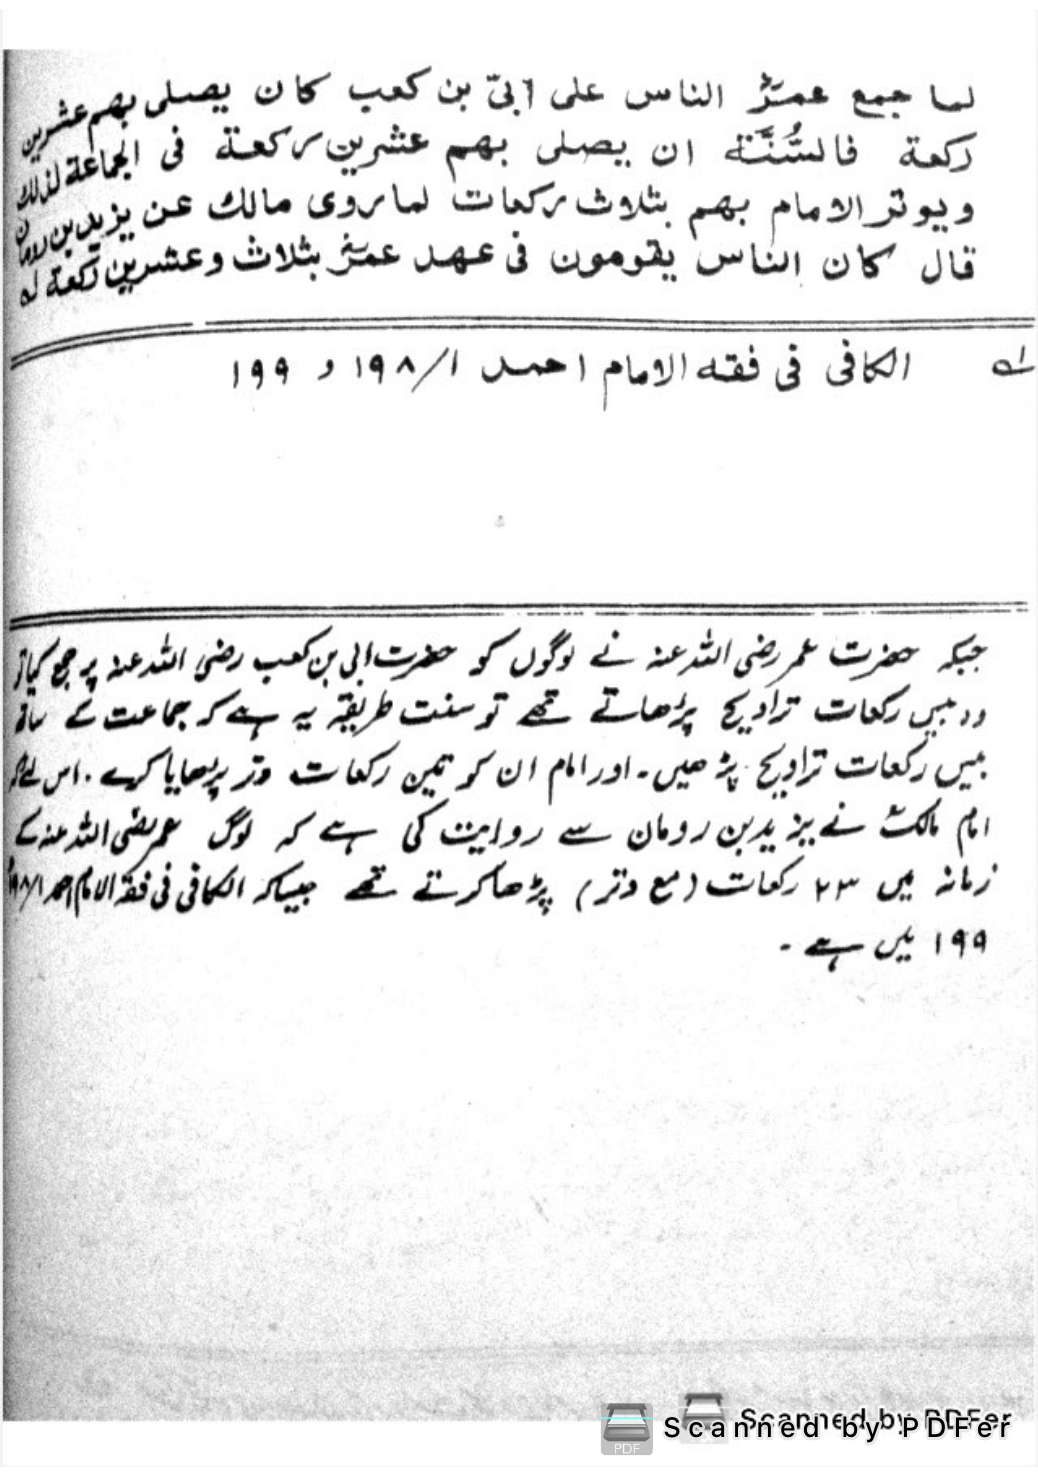 لما جمع عمرؓ الناس علی ابیّ بن کعب کان یصلی بهم عشرین
رکعة فالسُّنَّة ان یصلی بهم عشرین رکعة فی الجماعة لذلك
ویوتر الامام بهم بثلاث رکعات لما روی مالك عن یزید بن رومان
قال کان الناس یقومون فی عهد عمرؓ بثلاث وعشرین رکعة لہ
لہ الکافی فی فقه الامام احمد ۱/۱۹۸ و ۱۹۹
جبکہ حضرت عمر رضی اللہ عنہ نے لوگوں کو حضرت ابی بن کعب رضی اللہ عنہ پر جمع کیا تو
وہ بیس رکعات تراویح پڑھاتے تھے تو سنت طریقہ یہ ہے کہ جماعت کے ساتھ
بیس رکعات تراویح پڑھیں۔ اور امام ان کو تین رکعات وتر پڑھایا کرے۔ اس لئے کہ
امام مالکؒ نے یزید بن رومان سے روایت کی ہے کہ لوگ عمر رضی اللہ عنہ کے
زمانہ میں ۲۳ رکعات (مع وتر) پڑھا کرتے تھے جیسا کہ الکافی فی فقہ الامام احمد ۱/۱۹۸
۱۹۹ میں ہے۔
Scanned by PDFer
Scanned by PDFer